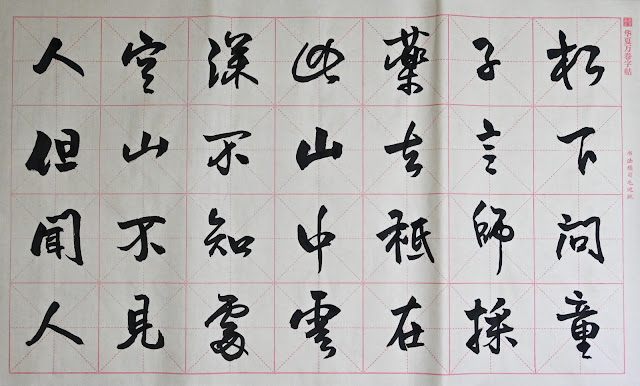 华夏万卷字帖
松下問童
子言師採
藥去祗在
此山中雲
深不知處
空山不見
人但聞人